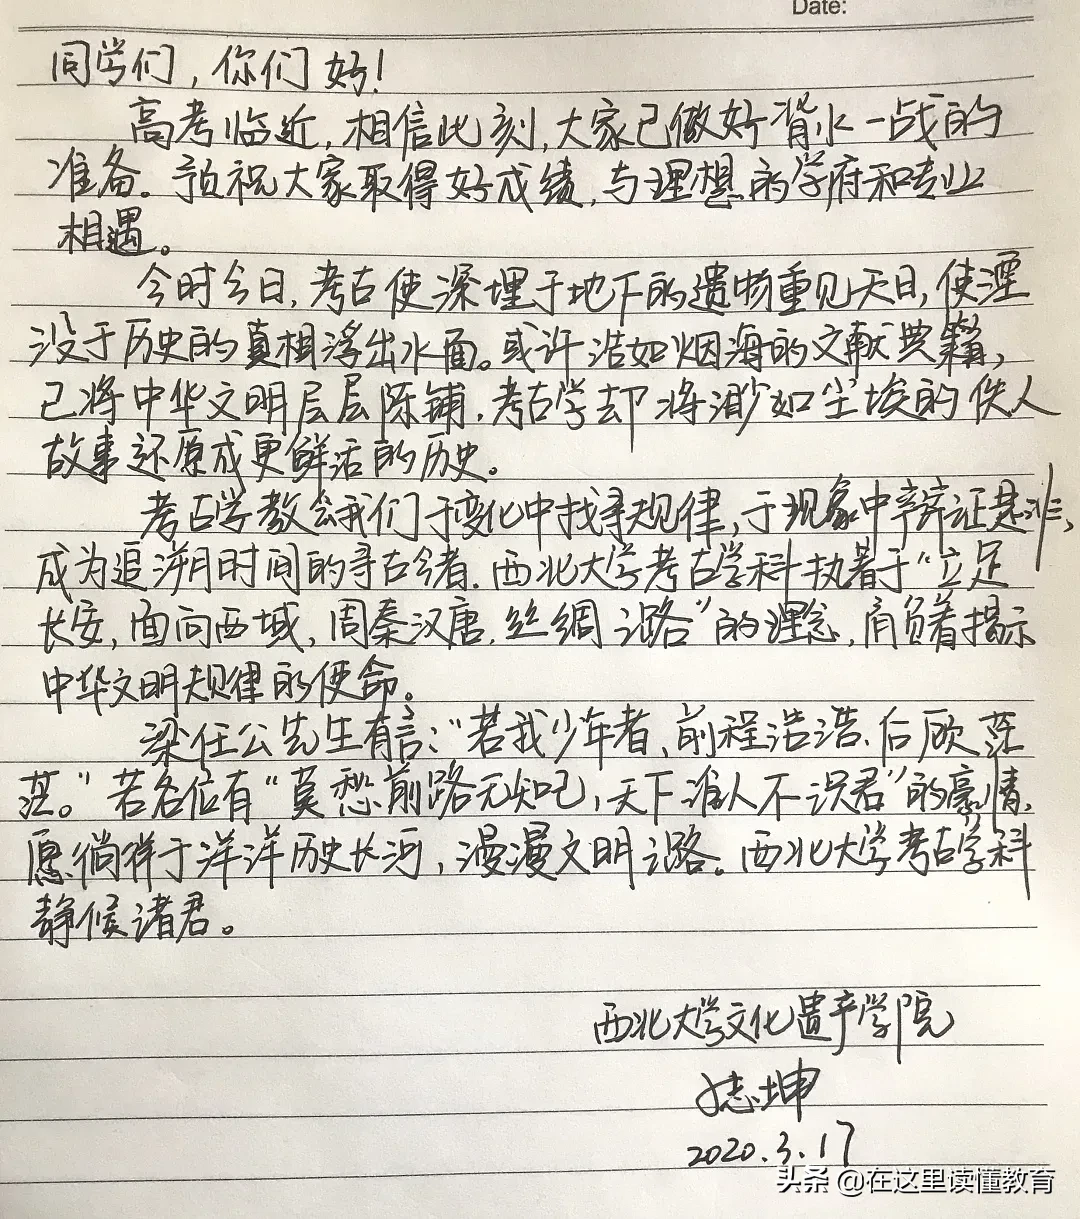 Date:
同学们，你们好！
高考临近，相信此刻，大家已做好背水一战的
准备。预祝大家取得好成绩，与理想的学府和专业
相遇。
今时今日，考古使深埋于地下的遗物重见天日，使湮
没于历史的真相浮出水面。或许浩如烟海的文献典籍，
已将中华文明层层陈铺，考古学却将渺如尘埃的佚人
故事还原成更鲜活的历史。
考古学教会我们于变化中找寻规律，于现象中辩证是非，
成为追溯时间的寻古今者。西北大学考古学科执着于“立足
长安，面向西域，周秦汉唐，丝绸之路”的理念，肩负着揭示
中华文明规律的使命。
梁任公先生有言：“若我少年者、前程浩浩、后顾茫
茫。”若各位有“莫愁前路无知己，天下谁人不识君”的豪情，
愿徜徉于洋洋历史长河，漫漫文明之路。西北大学考古学科
静候诸君。
西北大学文化遗产学院
志坤
2020.3.17
头条 @在这里读懂教育